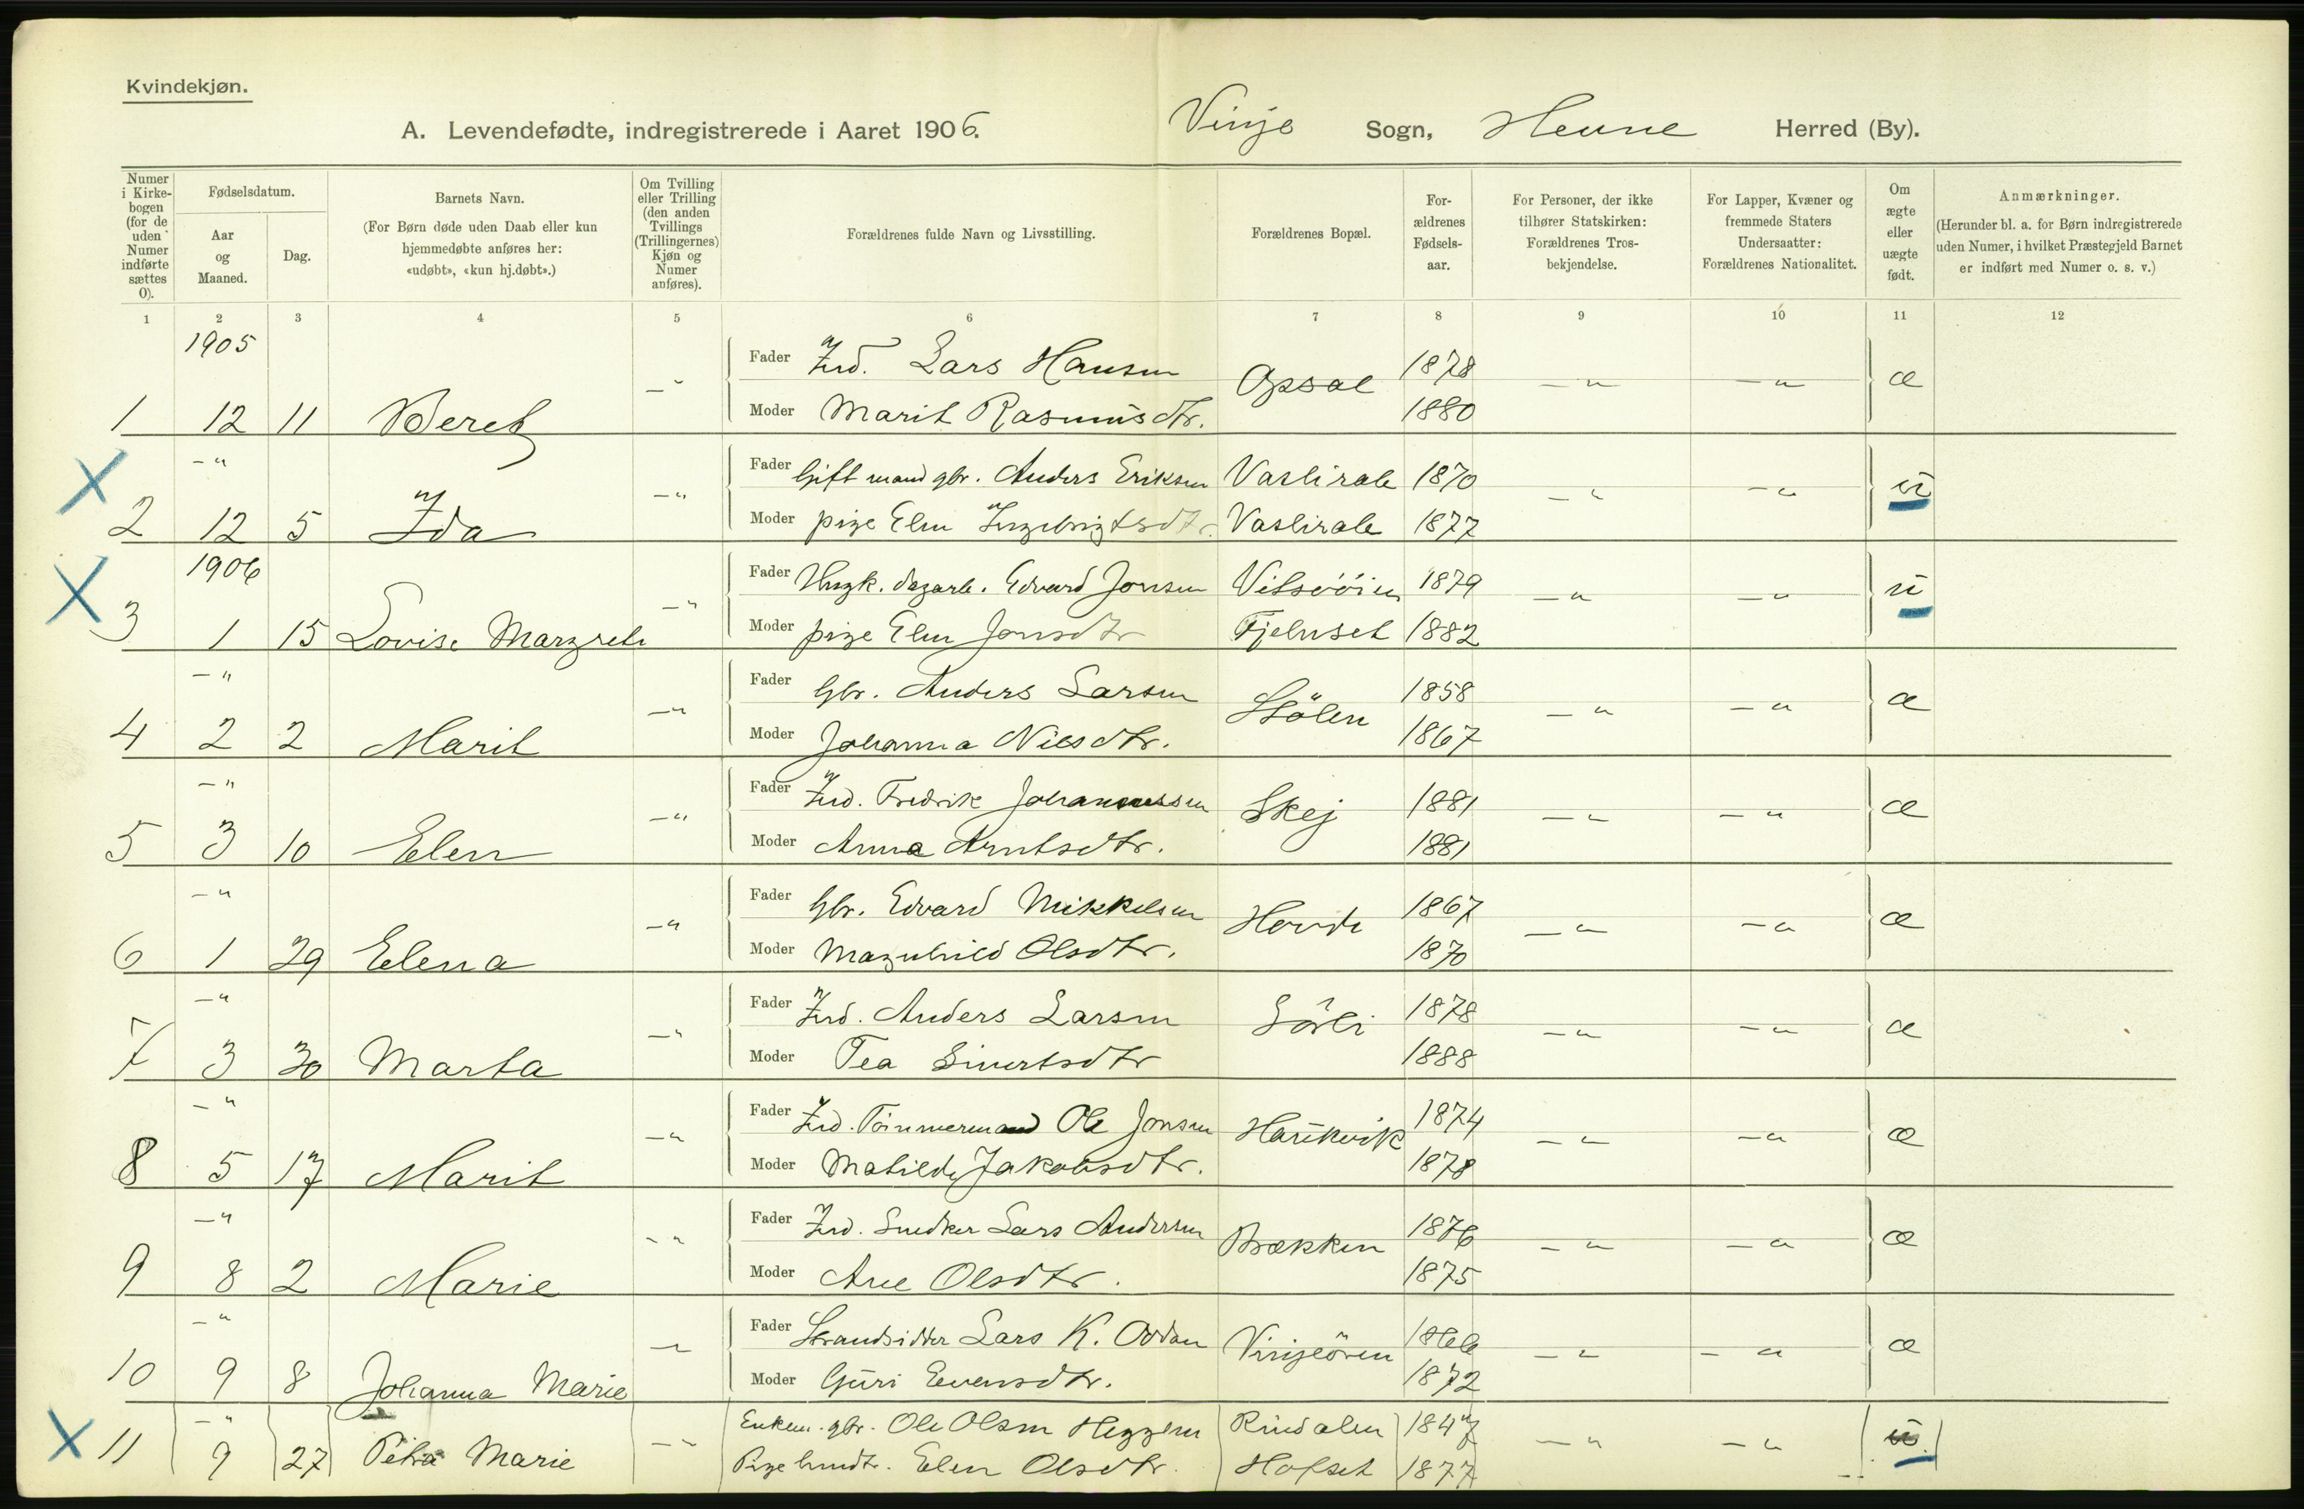 Kvindekjøn.
A. Levendefødte, indregistrerede i Aaret 1906. Vinje Sogn, Hevne Herred (By).
Numer i Kirkebogen (for de uden Numer indførte sættes 0).
Fødselsdatum.
Aar og Maaned.
Dag.
Barnets Navn.
(For Børn døde uden Daab eller kun hjemmedøbte anføres her: «udøbt», «kun hj.døbt».)
Om Tvilling eller Trilling (den anden Tvillings (Trillingernes) Kjøn og Numer anføres).
Forældrenes fulde Navn og Livsstilling.
Forældrenes Bopæl.
Forældrenes Fødselsaar.
For Personer, der ikke tilhører Statskirken: Forældrenes Trosbekjendelse.
For Lapper, Kvæner og fremmede Staters Undersaatter: Forældrenes Nationalitet.
Om ægte eller uægte født.
Anmærkninger.
(Herunder bl. a. for Børn indregistrerede uden Numer, i hvilket Præstegjeld Barnet er indført med Numer o. s. v.)
1 2 3 4 5 6 7 8 9 10 11 12
1905
Fader Ind. Lars Hansen Opsal 1878 -"- -"- æ
1 12 11 Beret -"- Moder Marit Rasmusdtr. 1880
X -"- Fader Gift mand gbr. Anders Eriksen Vaslirale 1870 -"- -"- u
2 12 5 Ida -"- Moder pige Elen Ingebrigtsdtr. Vaslirale 1877
X 1906 Fader Ungk. dagarb. Edvard Jonsen 1879 -"- -"- u
3 1 15 Lovise Margrete -"- Moder pige Elen Jonsdtr Fjelnset 1882
-"- Fader Gbr. Anders Larsen Stölen 1858 -"- -"- æ
4 2 2 Marit -"- Moder Johanna Nilsdtr. 1867
-"- Fader Ind. Fredrik Johannessen Skej 1881 -"- -"- æ
5 3 10 Elen -"- Moder Anna Arntsdtr. 1881
-"- Fader Gbr. Edvard Mikkelsen Hovde 1867 -"- -"- æ
6 1 29 Elena -"- Moder Magnhild Olsdtr. 1870
-"- Fader Ind. Anders Larsen Sörli 1878 -"- -"- æ
7 3 30 Marta -"- Moder Tea Sivertsdtr 1888
-"- Fader Ind. Tömmermand Ole Jonsen Haukvik 1874 -"- -"- æ
8 5 17 Marit -"- Moder Matilde Jakobsdtr. 1878
-"- Fader Ind. Snedker Lars Andersen Brækken 1876 -"- -"- æ
9 8 2 Marie -"- Moder Ane Olsdtr. 1875
-"- Fader Strandsidder Lars K. Oddan Vinjeören 1866 -"- -"- æ
10 9 8 Johanna Marie -"- Moder Guri Evensdtr. 1872
X -"- Enkem. gbr. Ole Olsen Heggem Rindalen 1847 -"- -"- u.
11 9 27 Petra Marie -"- Pige Elen Olsdtr. Hofset 1877